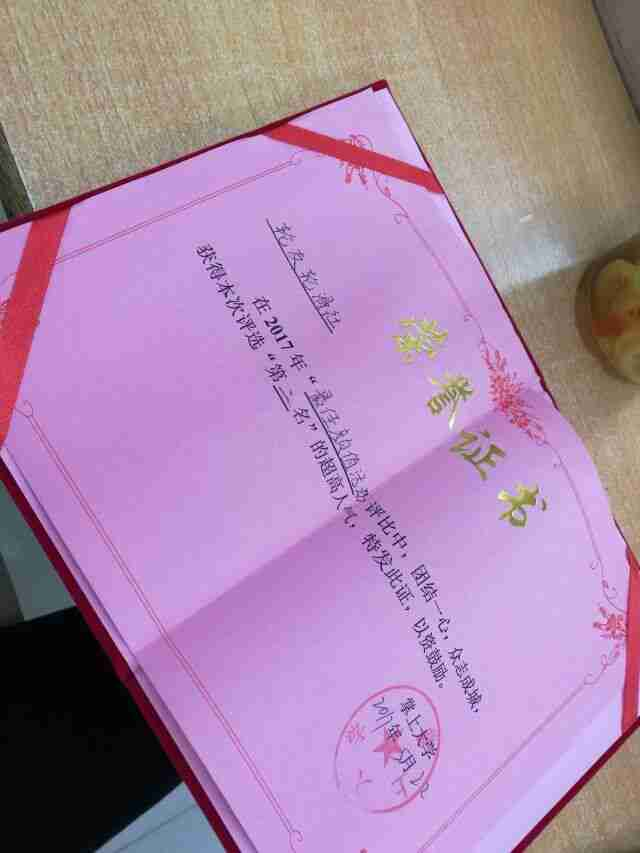 荣誉证书
轮友轮滑社
在2017年“最佳颜值活动评比中，团结一心，众志成城，
获得本次评选“第二名”的超高人气，特发此证，以资鼓励。
掌上大学
2017年5月22